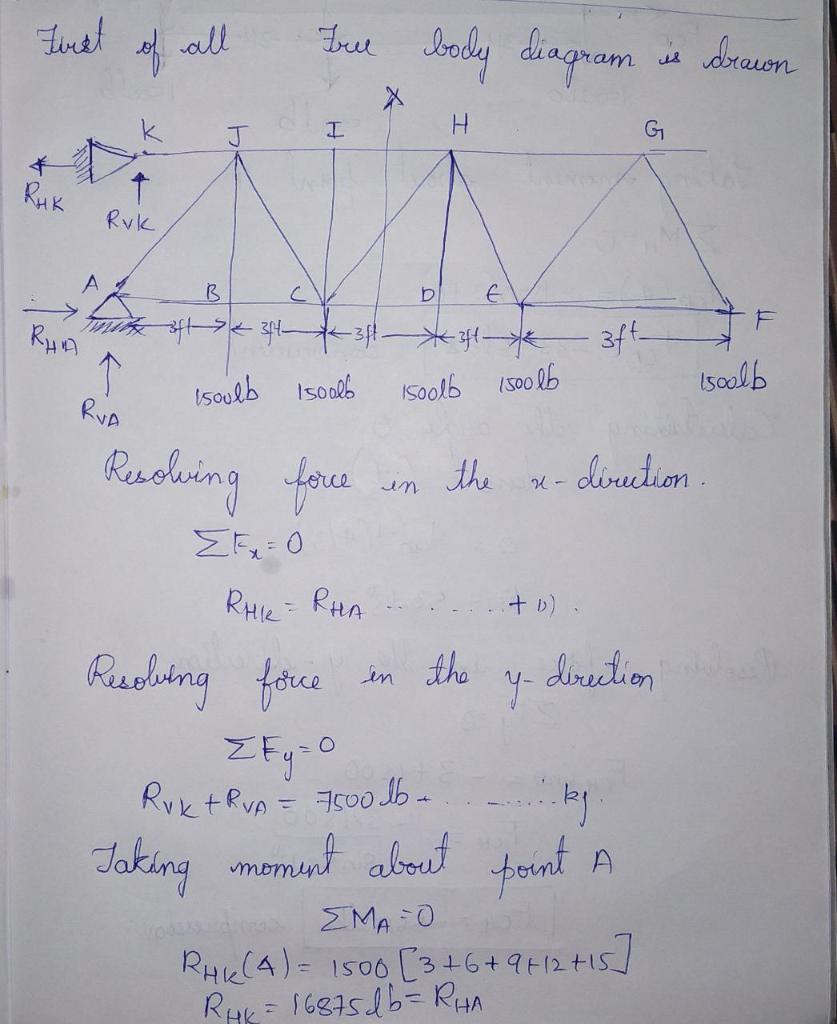 First of all Free body diagram is drawn
X
K J I H G
RHK
RVK
A B C D E F
RHA
3ft 3ft 3ft 3ft 3ft
RVA
1500lb 1500lb 1500lb 1500lb 1500lb
Resolving force in the x-direction.
ΣFx=0
RHK = RHA
Resolving force in the y-direction
ΣFy=0
RVK + RVA = 7500 lb
Taking moment about point A
ΣMA=0
RHK(4) = 1500 [3+6+9+12+15]
RHK = 16875lb = RHA